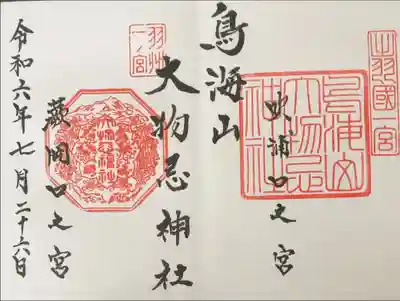 出羽國一宮
鳥海山大物忌神社
吹浦口之宮
鳥海山
大物忌神社
羽州一ノ宮
大物忌神社
蕨岡口之宮
令和六年七月二十六日